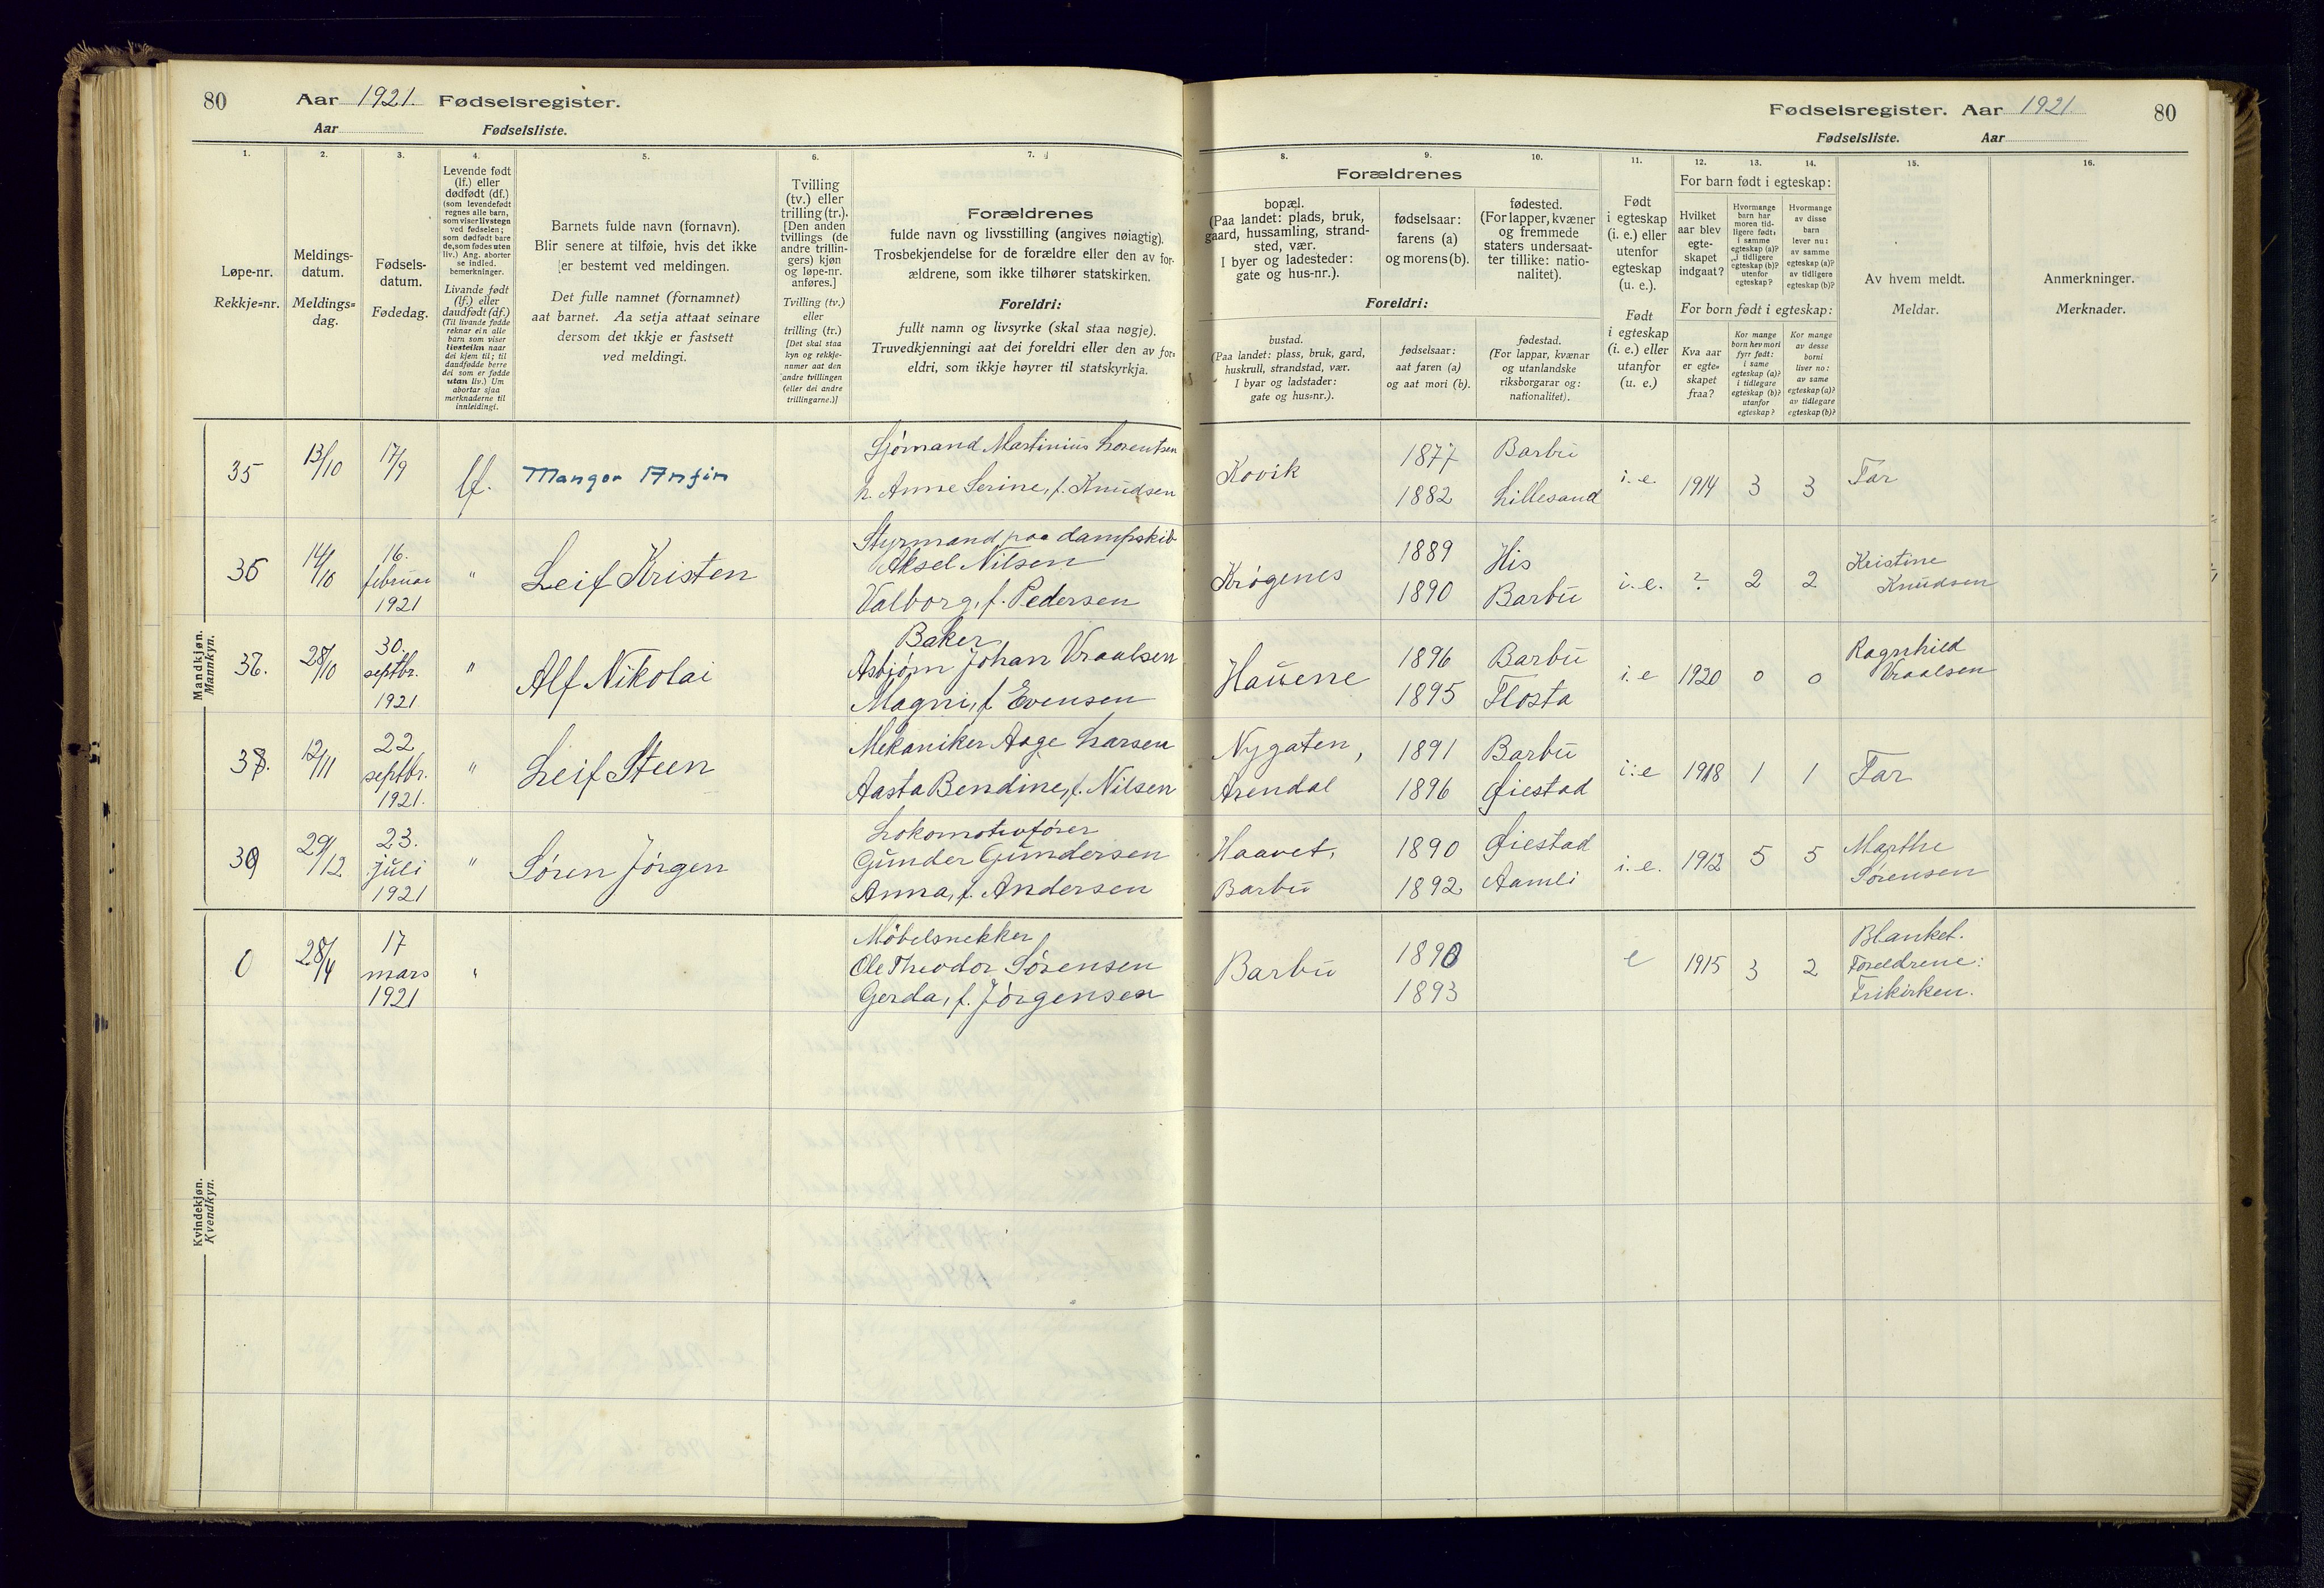 80 Aar 1921. Fødselsregister.
Aar Fødselsliste.
Fødselsregister. Aar 1921. 80
Fødselsliste. Aar
1. 2. 3. 4. 5. 6. 7.
Løpe-nr.
Rekkje-nr.
Meldings-
datum.
Meldings-
dag.
Fødsels-
datum.
Fødedag.
Levende født
(lf.) eller
dødfødt (df.)
(som levendefødt
regnes alle barn,
som viser livstegn
ved fødselen;
som dødfødt bare
de, som fødes uten
liv.) Ang. aborter
se indled.
bemerkninger.
Livande født
(lf.) eller
daudfødt (df.)
(Til livande fødde
reknar ein alle
barn som viser
livsteikn naar
dei kjem til; til
daudfødde berre
dei som er fødde
utan liv.) Um
abortar sjaa
merknaderne til
innleidingi.
Barnets fulde navn (fornavn).
Blir senere at tilføie, hvis det ikke
er bestemt ved meldingen.
Det fulle namnet (fornamnet)
aat barnet. Aa setja attaat seinare
dersom det ikkje er fastsett
ved meldingi.
Tvilling
(tv.) eller
trilling (tr.).
[Den anden
tvillings (de
andre trillin-
gers) kjøn
og løpe-nr.
anføres.]
Tvilling (tv.)
eller
trilling (tr.)
[Det skal staa
kyn og rekkje-
numer aat den
andre tvillingen
(eller dei andre
trillingarne.)]
Forældrenes
fulde navn og livsstilling (angives nøiagtig).
Trosbekjendelse for de forældre eller den av for-
ældrene, som ikke tilhører statskirken.
Foreldri:
fullt namn og livsyrke (skal staa nøgje).
Truvedkjenningi aat dei foreldri eller den av for-
eldri, som ikkje høyrer til statskyrkja.
8. 9. 10. 11. 12. 13. 14. 15. 16.
Forældrenes
bopæl.
(Paa landet: plads, bruk,
gaard, hussamling, strand-
sted, vær.
I byer og ladesteder:
gate og hus-nr.).
fødselsaar:
farens (a)
og morens (b).
fødested.
(For lapper, kvæner
og fremmede
staters undersaat-
ter tillike: natio-
nalitet).
Foreldri:
bustad.
(Paa landet: plass, bruk, gard,
huskrull, strandstad, vær.
I byar og ladstader:
gate og hus-nr.).
fødselsaar:
aat faren (a)
og aat mori (b).
fødestad.
(For lappar, kvænar
og utanlandske
riksborgarar og:
nationalitet).
Født
i egteskap
(i. e.) eller
utenfor
egteskap
(u. e.).
Født
i egteskap
(i. e.) eller
utanfor
(u. e.)
For barn født i egteskap:
Hvilket
aar blev
egte-
skapet
indgaat?
Hvormange
barn har
moren tid-
ligere født:
i samme
egteskap (a)?
i tidligere
egteskap (b)?
utenfor
egteskap?
Hvormange
av disse
barn
lever nu:
av samme
egteskap (a)?
av tidligere
egteskap (b)?
For born født i egteskap:
Kva aar
er egte-
skapet
fraa?
Kor mange
born hev mori
fyrr født:
i same
egteskap (a)?
i tidlegare
egteskap (b)?
utanfor
egteskap?
Kor mange
av desse
borni
liver no:
av same
egteskap (a)?
av tidlegare
egteskap (b)?
Av hvem meldt.
Meldar.
Anmerkninger.
Merknader.
Mandkjøn.
Mannkyn.
35 13/10 17/9 lf. Mangor Anfin
Sjömand Martinius Lorentsen
h. Anne Serine, f. Knudsen
Kovik 1877 Barbu i. e. 1914 3 3 Far
1882 Lillesand
36 14/10 16. februar 1921 " Leif Kristen
Styrmand paa dampskib
Aksel Nilsen
Valborg, f. Pedersen
Krögenes 1889 His i. e. ? 2 2 Kristine
1890 Barbu Knudsen
28/10 30. septbr. 1921 " Alf Nikolai
Baker
Asbjørn Johan Vraalsen
Magni, f. Evensen
Hauene 1896 Barbu i. e 1920 0 0 Ragnhild
1895 Flosta Vraalsen
12/11 22 septbr. 1921. " Leif Steen
Mekaniker Aage Larsen
Aasta Bendine, f. Nilsen
Nygaten, 1891 Barbu i. e 1918 1 1 Far
Arendal 1896 Øiestad
39 29/12 23. juli 1921 " Sören Jörgen
Lokomotivförer
Gunder Gundersen
Anna, f. Andersen
Haavet, 1890 Øiestad i. e. 1912 5 5 Marthe
Barbu 1892 Aamli Sörensen
Kvindekjøn.
Kvendkyn.
0 28/4 17 mars 1921 "
Möbelsnekker
Ole Theodor Sörensen
Gerda, f. Jörgensen
Barbu 1890 e 1915 3 2 Blanket.
1893 Foreldrene:
Frikirken.